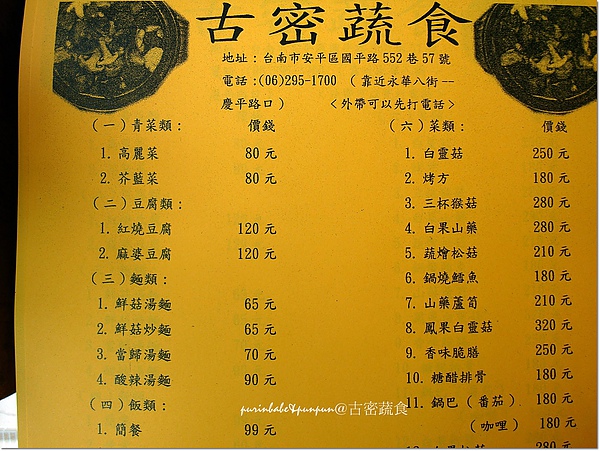 古密蔬食
地址：台南市安平區國平路 552 巷 57 號
電話：(06)295-1700 （靠近永華八街 --
慶平路口） ＜外帶可以先打電話＞
（一）青菜類： 價錢
1. 高麗菜 80 元
2. 芥藍菜 80 元
（二）豆腐類：
1. 紅燒豆腐 120 元
2. 麻婆豆腐 120 元
（三）麵類：
1. 鮮菇湯麵 65 元
2. 鮮菇炒麵 65 元
3. 當歸湯麵 70 元
4. 酸辣湯麵 90 元
（四）飯類：
1. 簡餐 99 元
（六）菜類： 價錢
1. 白靈菇 250 元
2. 烤方 180 元
3. 三杯猴菇 280 元
4. 白果山藥 280 元
5. 蔬燴松菇 210 元
6. 鍋燒鱈魚 180 元
7. 山藥蘆筍 210 元
8. 鳳果白靈菇 320 元
9. 香味脆膳 250 元
10. 糖醋排骨 180 元
11. 鍋巴（番茄） 180 元
（咖哩） 180 元
280 元
purinbabe&punpun@古密蔬食